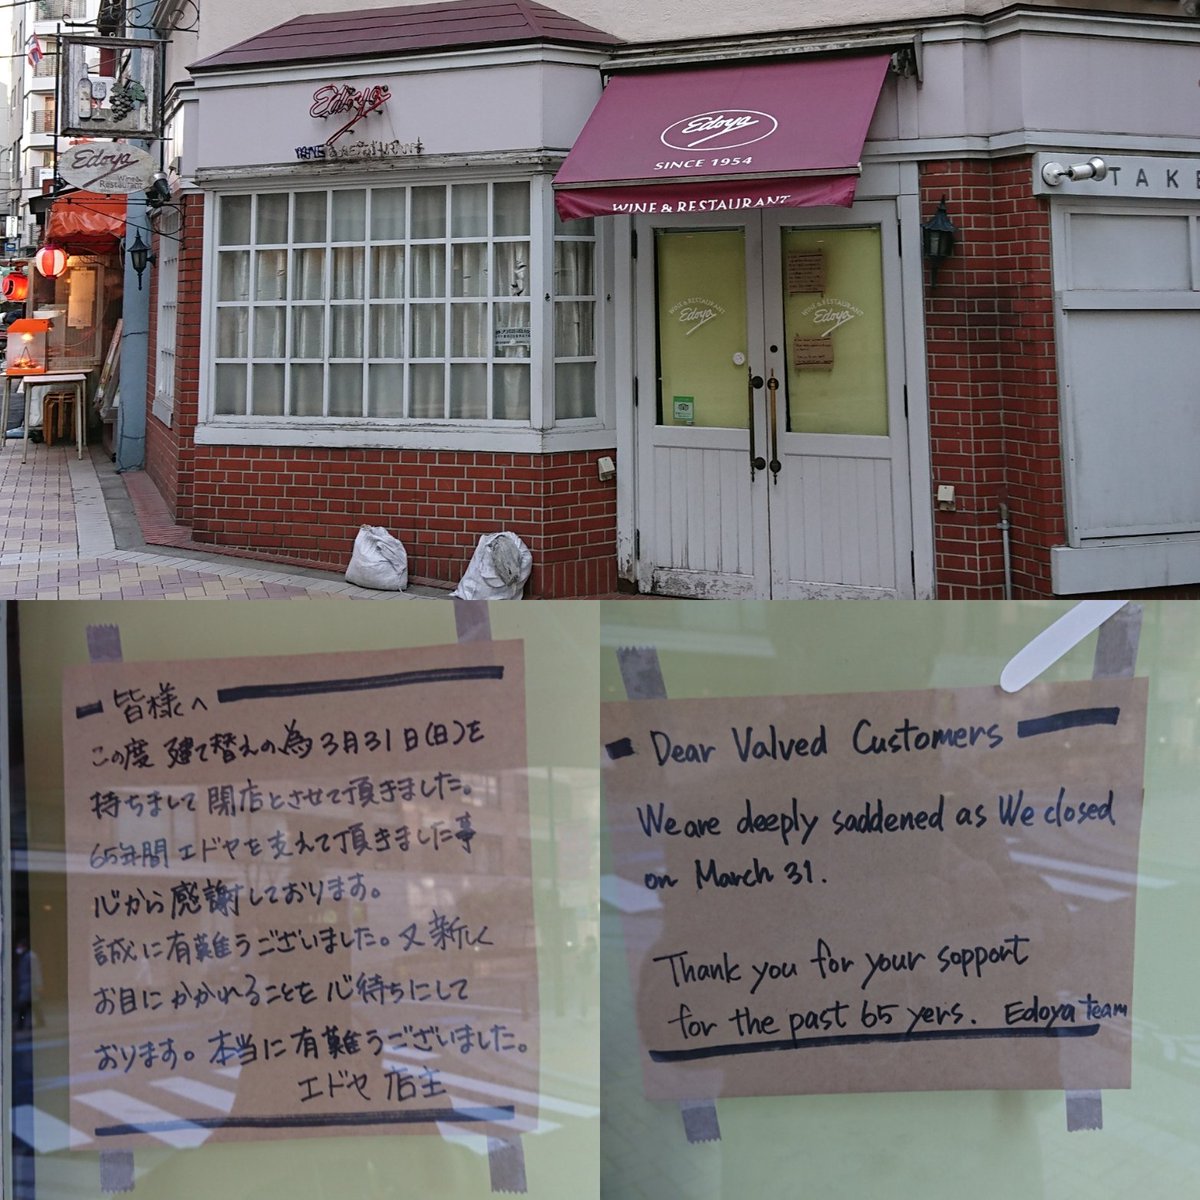 Edoya
Edoya
Wine &
Restaurant
Edoya
SINCE 1954
WINE & RESTAURANT
TAKE
WINE & RESTAURANT
Edoya
WINE & RESTAURANT
Edoya
皆様へ
この度 建て替えの為3月31日(日)を
持ちまして閉店とさせて頂きました。
65年間エドヤを支えて頂きました事
心から感謝しております。
誠に有難うございました。又新しく
お目にかかれることを心待ちにして
おります。本当に有難うございました。
エドヤ 店主
Dear Valved Customers
We are deeply saddened as We closed
on March 31.
Thank you for your sopport
for the past 65 yers. Edoya team